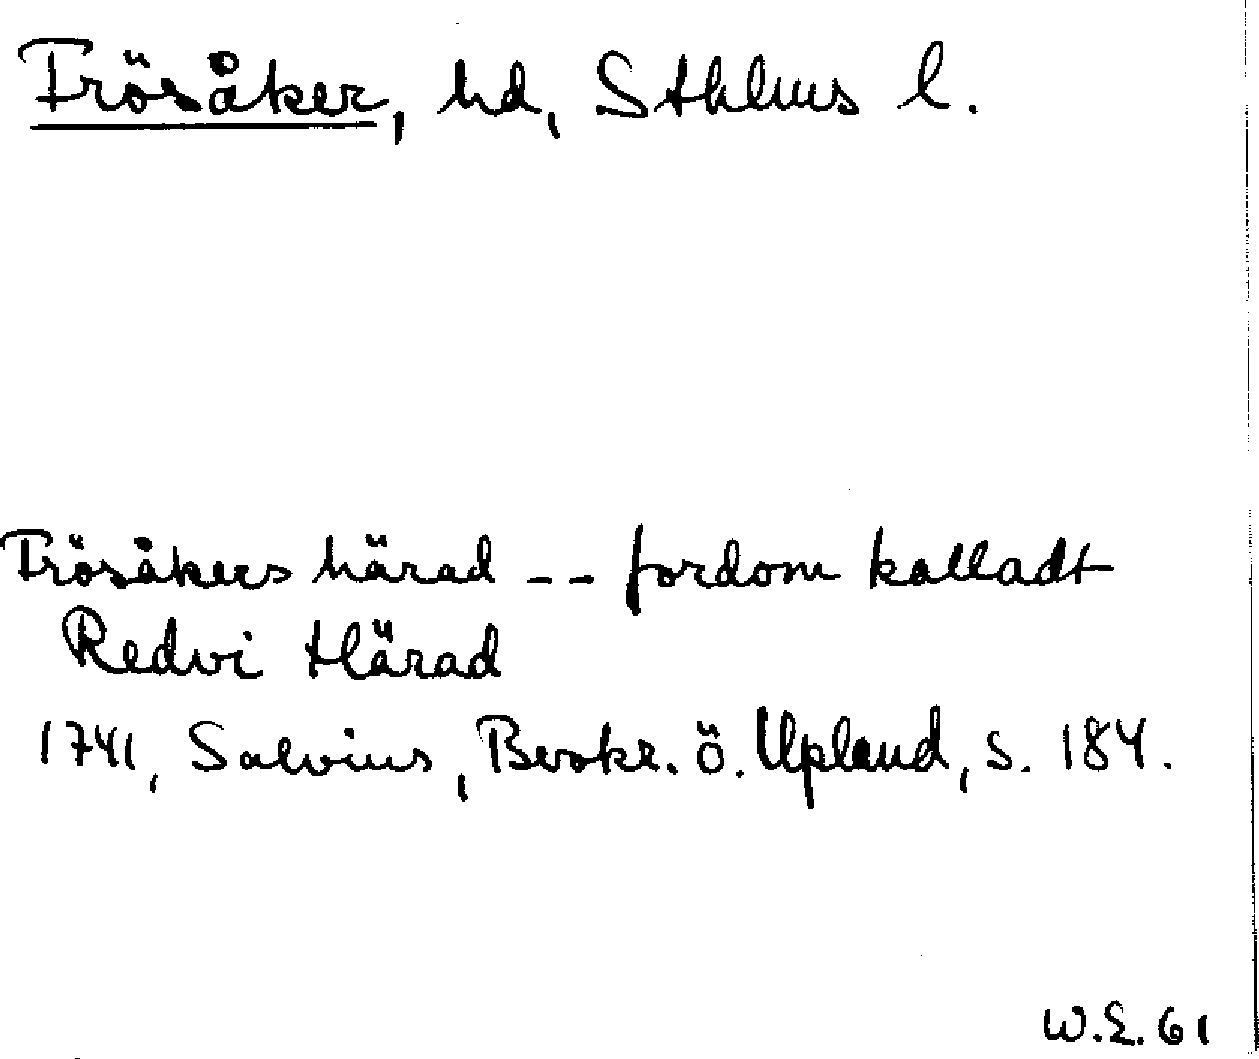 Frösåker, hd, Sthlms l.
Frösåkers härad -- fordom kalladt
Redvi Härad
1741, Salvius, Beskr. ö. Upland, s. 184.
W.E. 61